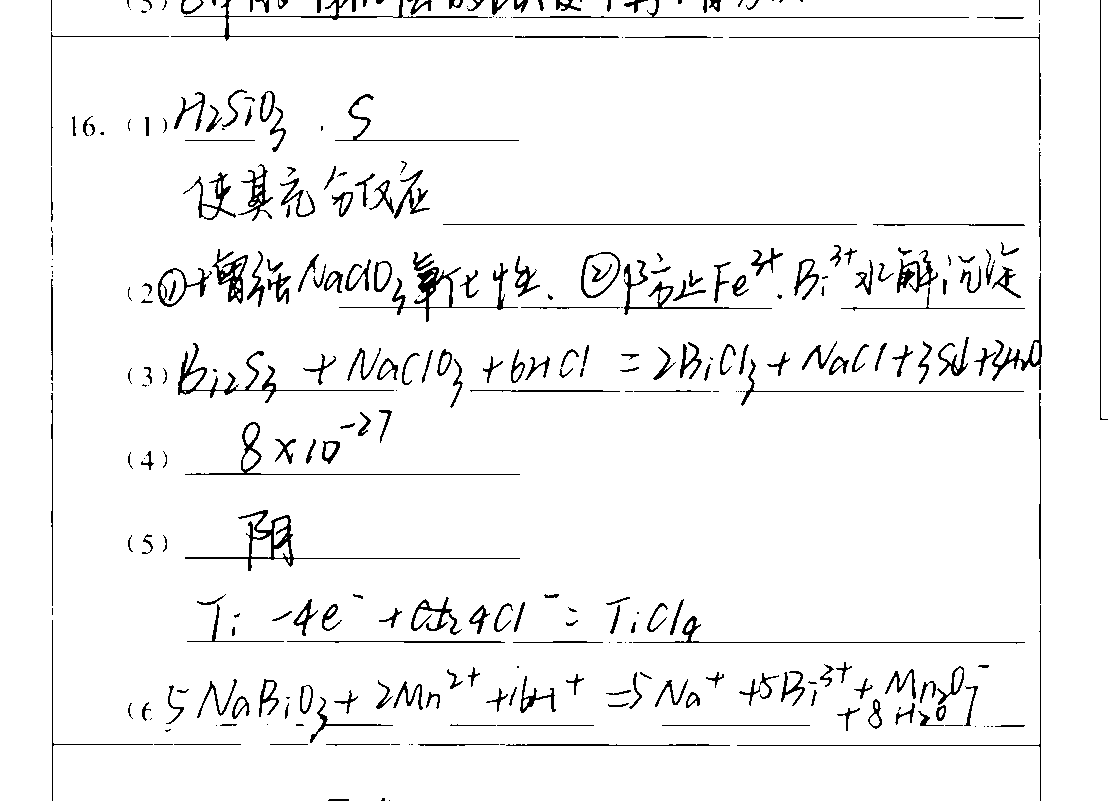 16. (1) H₂SiO₃ . S
使其充分反应
(2 ①增强NaClO₃氧化性、②防止Fe³⁺.Bi³⁺水解沉淀
(3) Bi₂S₃ + NaClO₃ + 6HCl = 2BiCl₃ + NaCl + 3S↓ + 3H₂O
(4) 8×10⁻²⁷
(5) 阴
Ti -4e⁻ + 4Cl⁻ = TiCl₄
(6 5NaBiO₃ + 2Mn²⁺ + 16H⁺ = 5Na⁺ + 5Bi³⁺ + Mn₂O₇⁻
+ 8H₂O